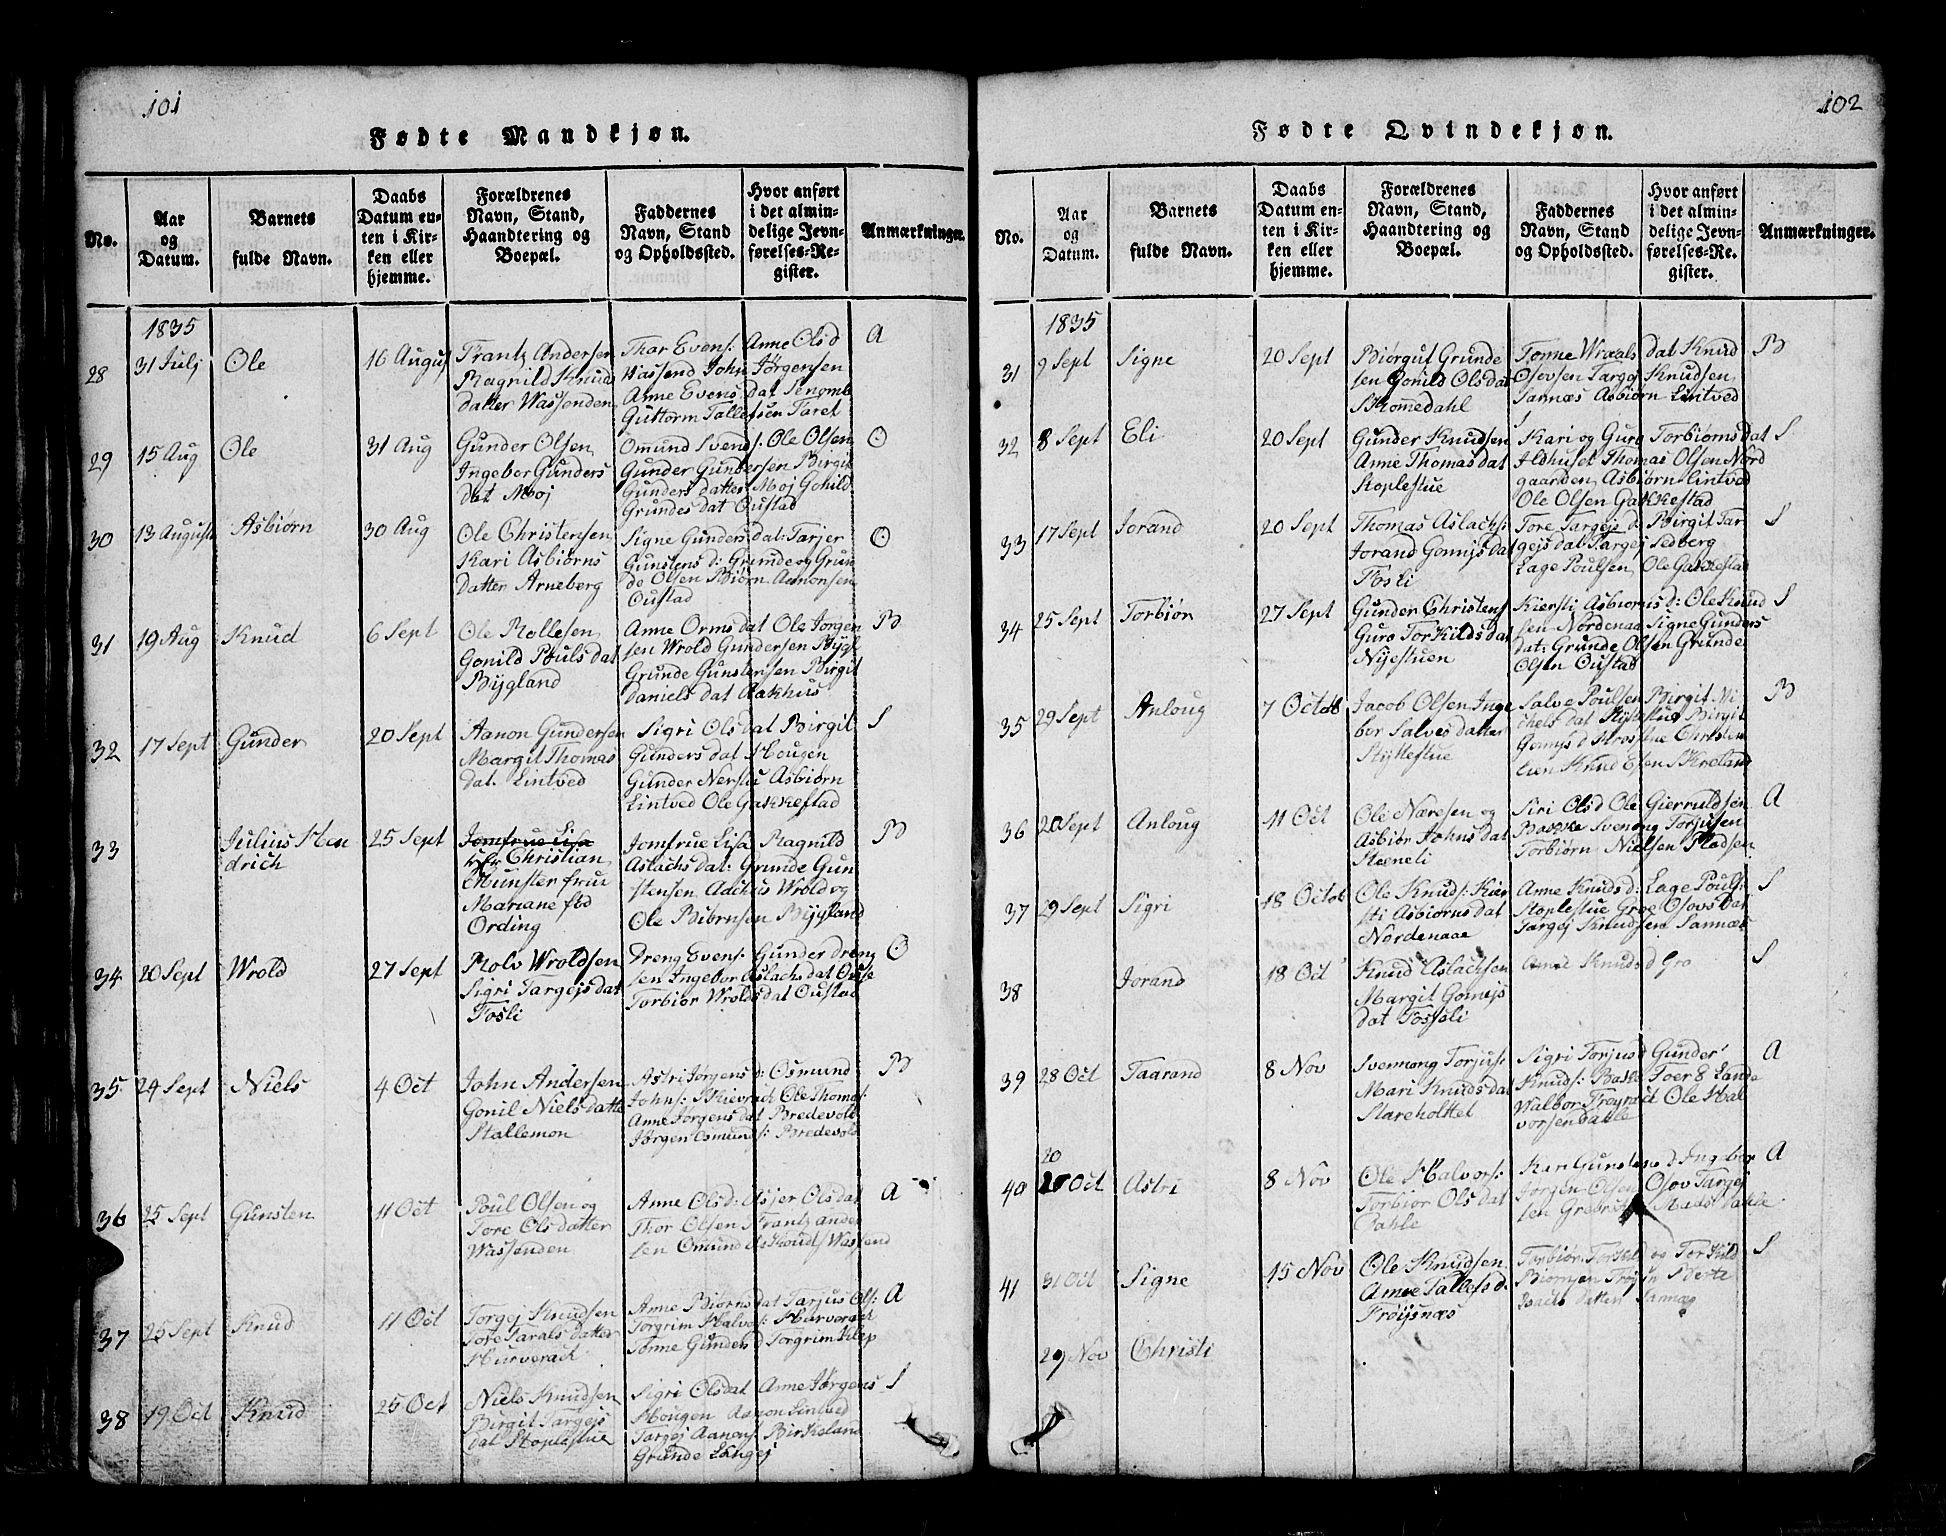 101
Fødte Mandkjøn.
No.
Aar
og
Datum.
Barnets
fulde Navn.
Daabs
Datum en-
ten i Kir-
ken eller
hjemme.
Forældrenes
Navn, Stand,
Haandtering og
Boepæl.
Faddernes
Navn, Stand
og Opholdssted.
Hvor anført
i det almin-
delige Jevn-
førelses-Re-
gister.
Anmærkninger.
1835
28
31 Julj
Ole
16 August
Frantz Andersen
Ragnild Knuds
datter Wassenden
Thor Evens: Anne Olsd
Wassend John Jørgensen
Anne Evens dat Senomb
Guttorm Tallefsen Taret
A
29
15 Aug
Ole
31 Aug
Gunder Olsen
Ingebor Gunders
dat Moj
Ommund Svends: Ole Olsen
Gunder Gundersen Birgit
Gunders datter Moj Gohild
Grundes dat Oustad
O
30
13 August
Asbiørn
30 Aug
Ole Christensen
Kari Asbiørns
datter Arneberg
Signe Gunders dat: Tarjer
Gunstens d: Grunde og Grun
de Olsen Biørn Aanonsen
Oustad
O
31
19 Aug
Knud
6 Sept
Ole Rollesen
Gonild Pouls dat
Bygland
Anne Orms dat Ole Jørgen
sen Wrold Gundersen Bygl
Grunde Gunstensen Birgit
Daniels dat Aakhus
B
32
17 Sept
Gunder
20 Sept
Aanon Gundersen
Margit Thomas
dat. Lintved
Sigri Ols dat Birgit
Gunders dat Hougen
Gunder Nerstu Asbiørn
Lintved Ole Gakkestad
S
33
Julius Hen
drich
25 Sept
Jomfrue Lisa
Hr Christian
Munster frue
Mariane fød
Ording
Jomfrue Lisa Ragnild
Aslachs dat: Grunde Gun
stensen Aachus Wrold og
Ole Biörnsen Bygland
B
34
20 Sept
Wrold
27 Sept
Rolv Wroldsen
Sigri Targejs dat
Fosli
Dreng Evens: Gunder dreng
sen Ingebor Aslachs dat Ouse
Torbior Wrolds dat Oustad
O
35
24 Sept
Niels
4 Oct
John Andersen
Gonil Niels datte
Stallemon
Astri Jørgens d: Osmund
Johns: Skievrack Ole Thomas:
Anne Jorgens dat Bredevold
Jørgen Osmunds: Bredevold
B
36
25 Sept
Gunsten
11 Oct
Poul Olsen og
Tore Ols datter
Wassenden
Anne Olsd: Asjer Olsdat
Thor Olsen Frantz ander
sen Omund Knuds Wassend
A
37
25 Sept
Knud
11 Oct
Torgej Knudsen
Tore Tarals datter
Hurverack
Anne Biørns dat Tarjus Ols:
Torgrim Halvors: Hurverack
Tonne Gunders d Torgrim Klep
A
38
19 Oct
Knud
25 Oct
Niels Knudsen
Birgit Targejs
dat Stoplestue
Sigri Olsdat Anne Jørgens
Hougen Aanon Lintved
Targej Aanens: Birkeland
Grunde Langej
S
102
Fødte Qvindekjøn.
No.
Aar
og
Datum.
Barnets
fulde Navn.
Daabs
Datum en-
ten i Kir-
ken eller
hjemme.
Forældrenes
Navn, Stand,
Haandtering og
Boepæl.
Faddernes
Navn, Stand
og Opholdssted.
Hvor anført
i det almin-
delige Jevn-
førelses-Re-
gister.
Anmærkninger.
1835
31
9 Sept
Signe
20 Sept
Biørgul Grunde
sen Gonild Olsdat
Skomedahl
Tonne Wraals dat Knud
Osovsen Targej Knudsen
Sannæs Asbiørn Lintved
B
32
8 Sept
Eli
20 Sept
Gunder Knudsen
Anne Thomas dat
Stoplestue
Kari og Guro Torbiørns dat
Ildhuset Thomas Olsen Nord
gaarden Asbiørn Lintved
Ole Olsen Gakkestad
S
33
17 Sept
Jorand
20 Sept
Thomas Aslachs:
Jorand Gomejs dat
Fosli
Tore Targejs d: Birgit Tar
gejs dat Targej Sedberg
Lage Poulsen Ole Gakkestad
S
34
25 Sept
Torbiør
27 Sept
Gunder Christens
Guro Torkilds dat
Nyestuen
Kiersti Asbiørns d: Ole Knud
sen Nordenaa Signe Gunders
dat: Grunde Olsen Grunde
Olsen Oustad
S
35
29 Sept
Anloug
7 Octob
Jacob Olsen Inge
bor Salves datter
Stykkestue
Salve Poulsen Birgit Mi
chels dat Stykkestue Birgit
Gomejs d Krosstue Christen
B
36
20 Sept
Anloug
11 Oct
Ole Næresen og
Asbiør Johns dat
Steeneli
Siri Olsd Ole Gierruldsen
Bakke Svenong Torjusen
Torbiørn Nielsen Pladsen
A
37
29 Sept
Sigri
18 Octob
Ole Knuds: Kier
sti Asbiørns dat
Nordenaae
Anne Knuds d: Lage Pouls:
Stoplestue Groe Osovs Dat
Targej Knudsen Sannæs
S
38
Jorand
18 Oct
Knud Aslachsen
Margit Gomejs
dat Fossli
Anne Knuds d Gro
S
39
28 Oct
Taarand
8 Nov
Svennong Torjus:
Mari Knuds dat
Stareholttet
Sigri Torjus d Gunder
Walbor Frøyrack Ole Hal
vorsen Dahle
A
40
20
Oct
Astri
8 Nov
Ole Halvors:
Torbior Ols dat
Dahle
Kari Gunstens d: Ingebor
Jorgen Olsen Osov Targej
A
41
31 Oct
Signe
15 Nov
Ole Knudsen
Anne Tallefs d.
Frøysnæs
Torbiør Torkild og Torkild
S
29 Nov
Christi